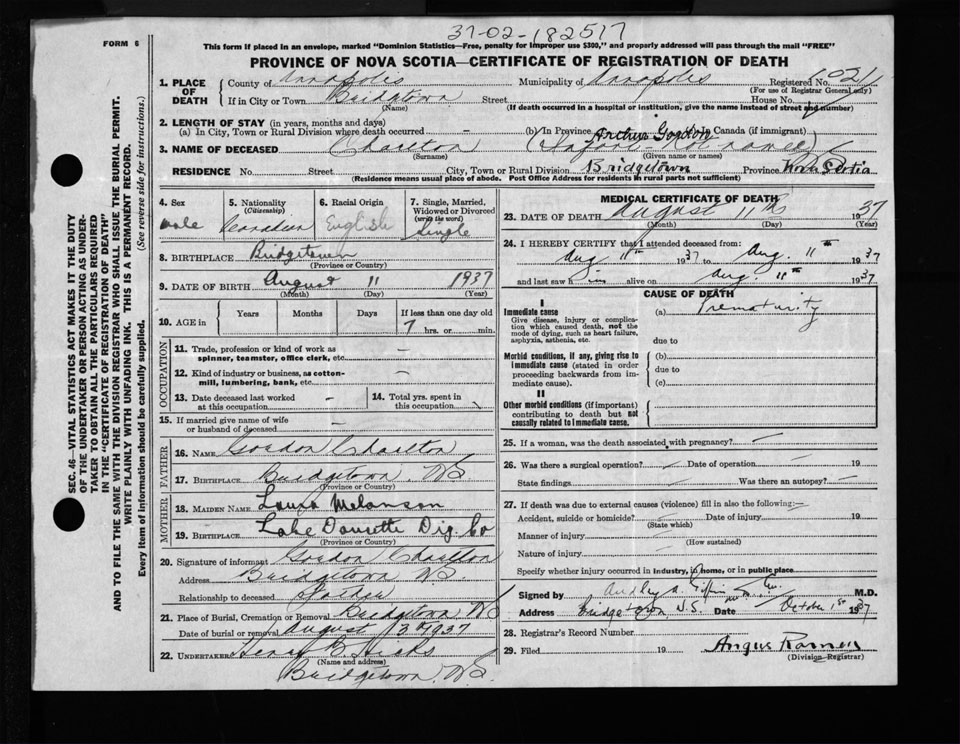 37-02-182517
FORM 6
This form if placed in an envelope, marked "Dominion Statistics—Free, penalty for improper use $300," and properly addressed will pass through the mail "FREE"
PROVINCE OF NOVA SCOTIA—CERTIFICATE OF REGISTRATION OF DEATH
1. PLACE OF DEATH
County of Annapolis Municipality of Annapolis Registered No.
(For use of Registrar General only)
If in City or Town Bridgetown Street House No.
(Name) (If death occurred in a hospital or institution, give the name instead of street and number)
2. LENGTH OF STAY (in years, months and days)
(a) In City, Town or Rural Division where death occurred — (b) In Province In Canada (if immigrant)
Arthur Gordon
3. NAME OF DECEASED Charlton (Infant - Not named)
(Surname) (Given name or names)
RESIDENCE No. Street City, Town or Rural Division Bridgetown Province Nova Scotia
(Residence means usual place of abode. Post Office Address for residents in rural parts not sufficient)
4. Sex male
5. Nationality (Citizenship) Canadian
6. Racial Origin English
7. Single, Married, Widowed or Divorced (write the word) Single
8. BIRTHPLACE Bridgetown
(Province or Country)
9. DATE OF BIRTH August 11 1937
(Month) (Day) (Year)
10. AGE in Years Months Days If less than one day old
7 hrs. or min.
OCCUPATION
11. Trade, profession or kind of work as spinner, teamster, office clerk, etc. —
12. Kind of industry or business, as cotton-mill, lumbering, bank, etc. —
13. Date deceased last worked at this occupation —
14. Total yrs. spent in this occupation
15. If married give name of wife or husband of deceased —
FATHER
16. NAME Gordon Charlton
17. BIRTHPLACE Bridgetown, NS
(Province or Country)
MOTHER
18. MAIDEN NAME Laura Melanson
19. BIRTHPLACE Lake Doucette Dig. Co
(Province or Country)
20. Signature of informant Gordon Charlton
Address Bridgetown NS.
Relationship to deceased Father
21. Place of Burial, Cremation or Removal Bridgetown NS
Date of burial or removal August 13th 1937
22. UNDERTAKER Henry B. Hicks
(Name and address)
Bridgetown, NS.
MEDICAL CERTIFICATE OF DEATH
23. DATE OF DEATH August 11th 1937
(Month) (Day) (Year)
24. I HEREBY CERTIFY that I attended deceased from:
Aug 11th 1937 to Aug. 11th 1937
and last saw him alive on Aug. 11th 1937
CAUSE OF DEATH
I
Immediate cause (a) Prematurity
Give disease, injury or complication which caused death, not the mode of dying, such as heart failure, asphyxia, asthenia, etc.
due to
Morbid conditions, if any, giving rise to immediate cause (stated in order proceeding backwards from immediate cause).
(b)
due to
(c)
II
Other morbid conditions (if important) contributing to death but not causally related to immediate cause.
25. If a woman, was the death associated with pregnancy? —
26. Was there a surgical operation? — Date of operation — 19
State findings — Was there an autopsy? —
27. If death was due to external causes (violence) fill in also the following:—
Accident, suicide or homicide? — Date of injury 19
(State which)
Manner of injury —
(How sustained)
Nature of injury —
Specify whether injury occurred in industry, in home, or in public place
Signed by M.D.
Address Bridgetown N.S. Date October 1st 1937
28. Registrar's Record Number
29. Filed 19 Angus
(Division Registrar)
SEC. 46—VITAL STATISTICS ACT MAKES IT THE DUTY
OF THE UNDERTAKER OR PERSON ACTING AS UNDERTAKER TO OBTAIN ALL THE PARTICULARS REQUIRED
IN THE "CERTIFICATE OF REGISTRATION OF DEATH"
AND TO FILE THE SAME WITH THE DIVISION REGISTRAR WHO SHALL ISSUE THE BURIAL PERMIT.
WRITE PLAINLY WITH UNFADING INK. THIS IS A PERMANENT RECORD.
Every item of information should be carefully supplied. (See reverse side for instructions.)